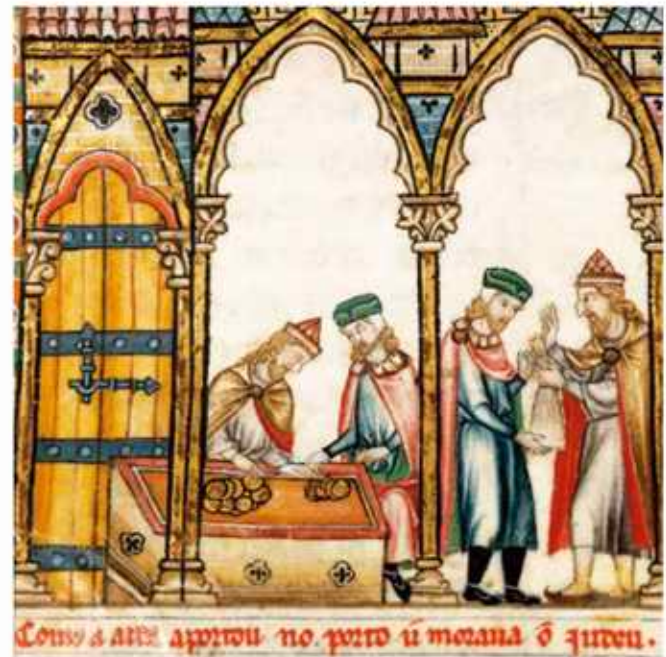 Como a arca aportou no porto u moraua o iudeu.